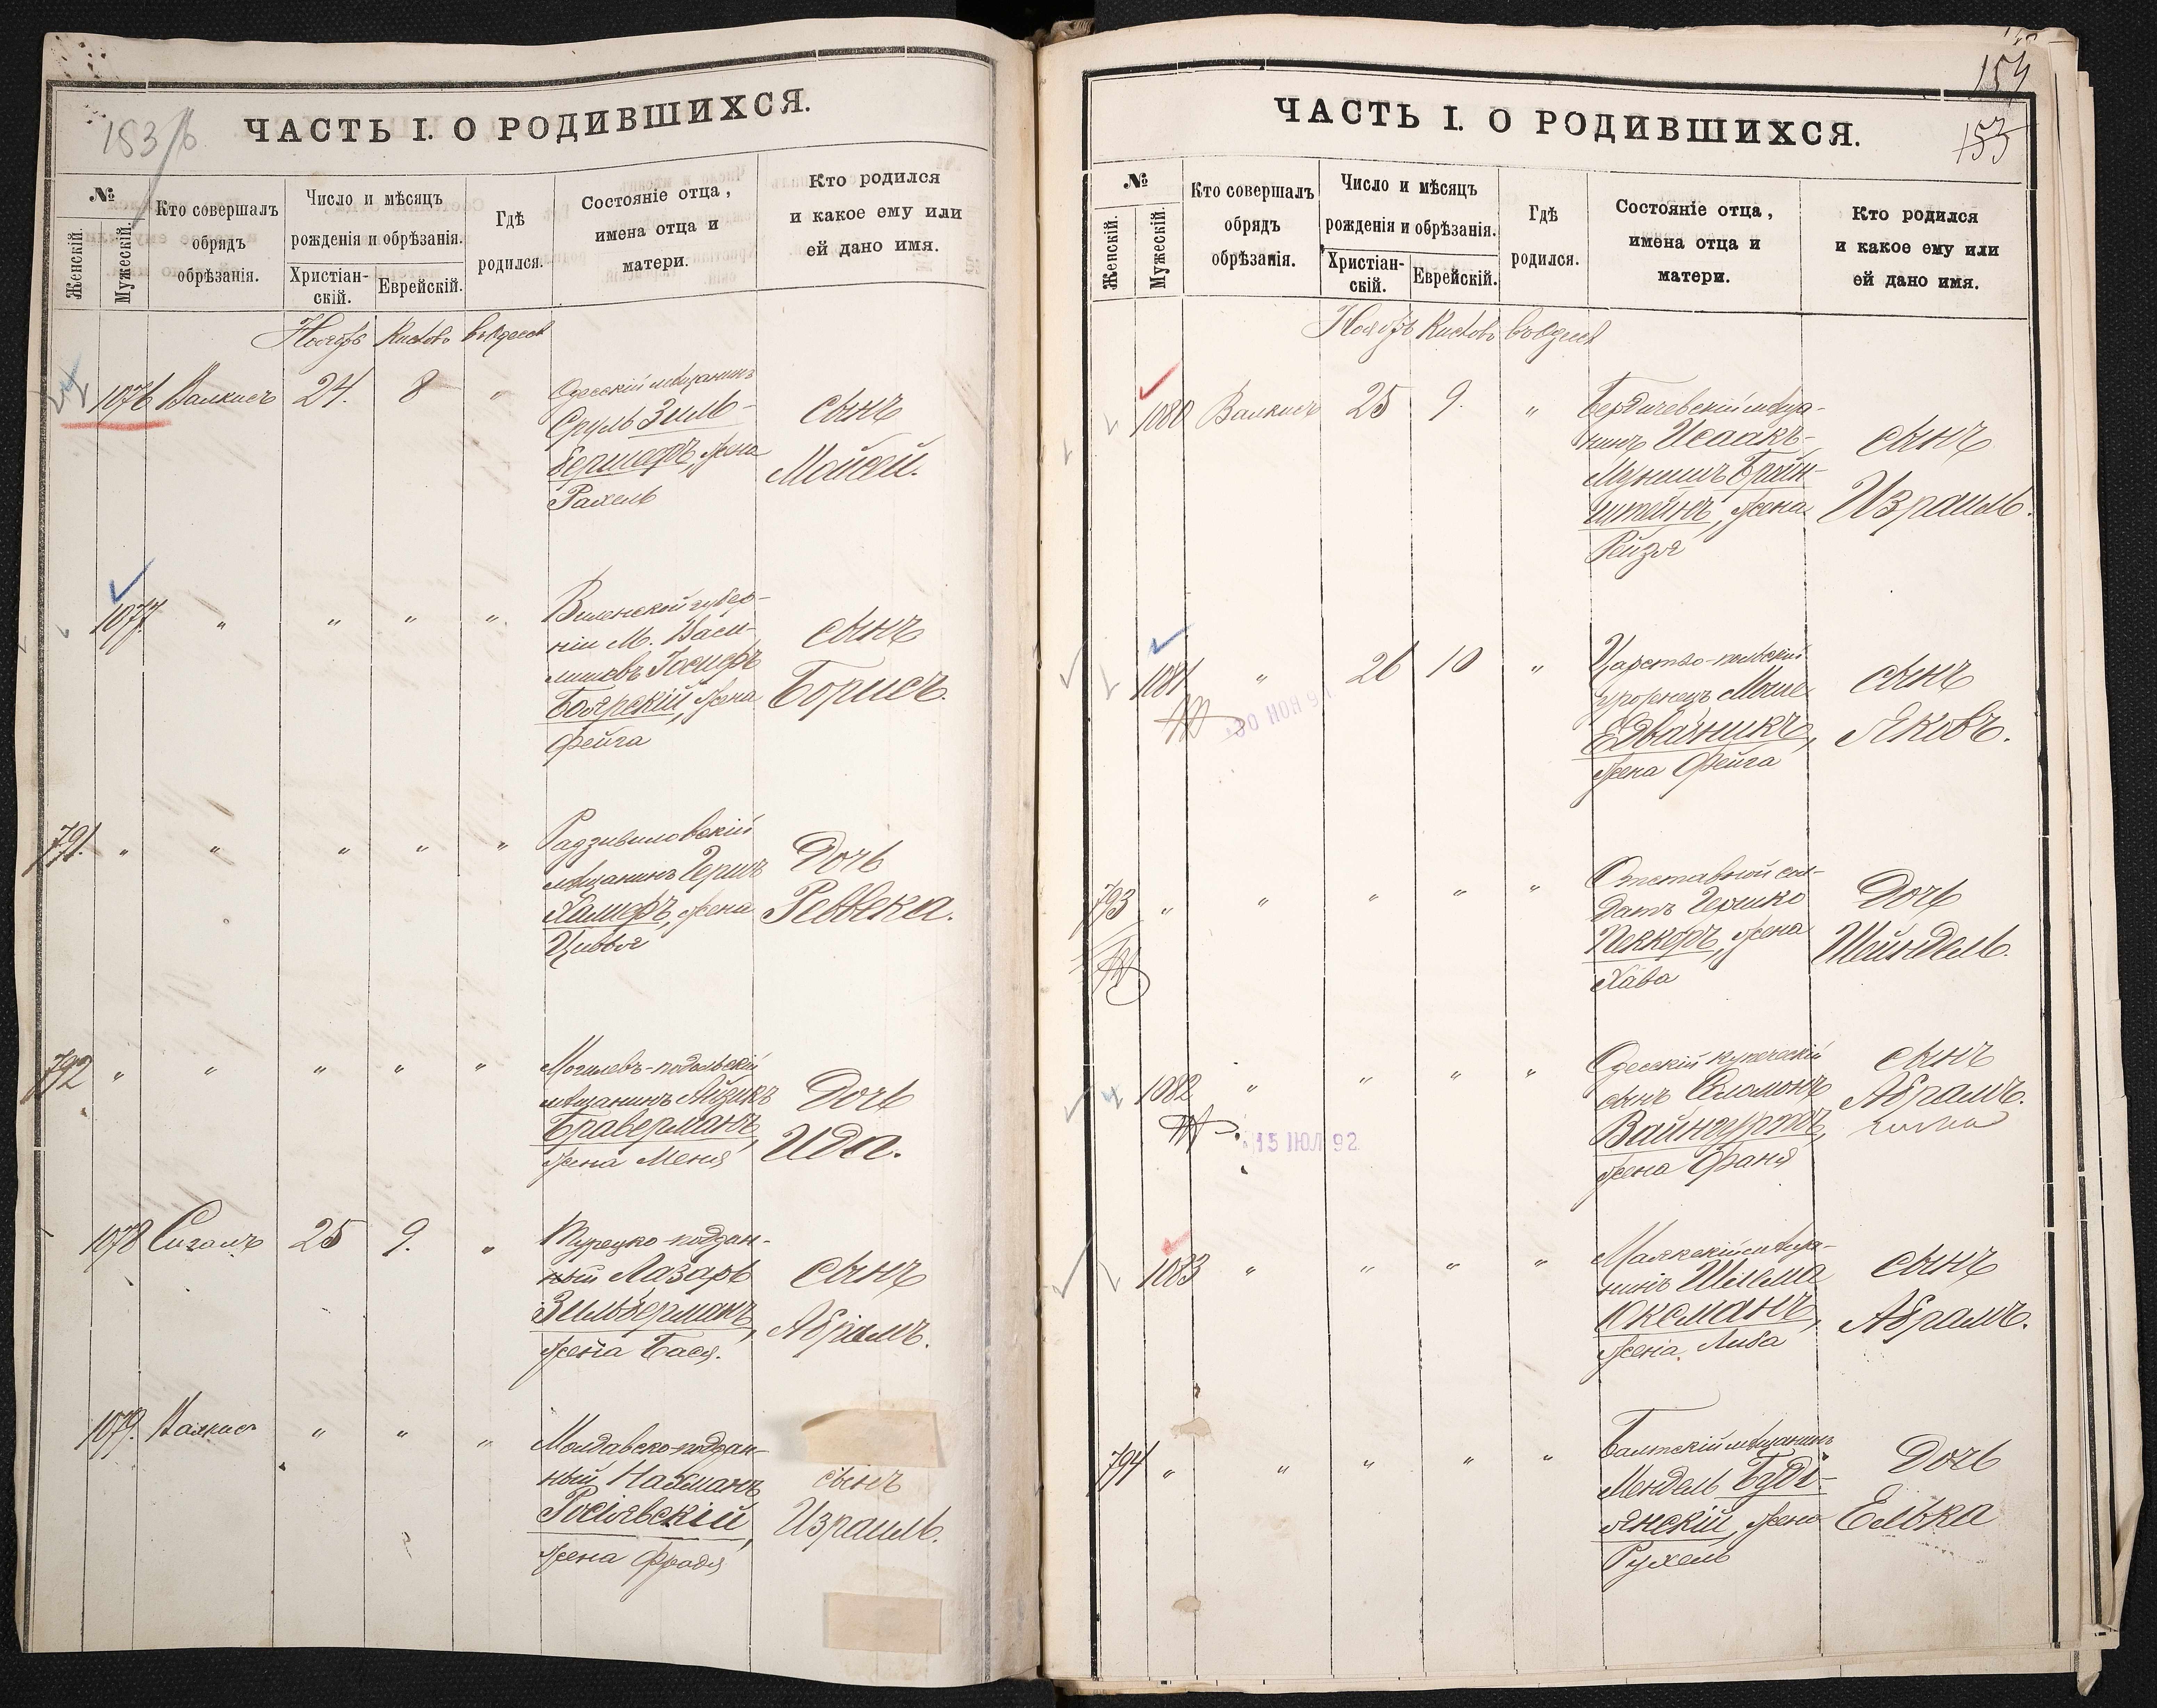 153/б
ЧАСТЬ I. О РОДИВШИХСЯ.
№
Женскій.
Мужескій.
Кто совершалъ
обрядъ
обрѣзанія.
Число и мѣсяцъ
рожденія и обрѣзанія.
Христіан-
скій.
Еврейскій.
Гдѣ
родился.
Состояніе отца,
имена отца и
матери.
Кто родился
и какое ему или
ей дано имя.
Ноябрь Кислевъ въ Одессѣ
1076 Валкисъ 24. 8 "
Одесскій мѣщанинъ
Сруль Зиль-
бершеръ, жена
Рахель
сынъ
Мойсей.
1077. " " " "
Виленской губер-
ніи М. Васи-
лишевъ Іосифъ
Боярскій, жена
Фейга
сынъ
Борисъ.
791. " " " " "
Радзивиловскій
мѣщанинъ Гершъ
жена
Циввя
Дочь
Реввека.
792 " " " " "
Могилевъ-подольскій
мѣщанинъ Айзикъ
Браверманъ,
жена Меня
Дочь
Ида.
1078 Сигалъ 25 9. "
Турецко-поддан-
ный Лазарь
Зильберманъ,
жена Бася.
сынъ
Абрамъ.
1079. Валкисъ " " "
Молдавско-поддан-
ный Нахманъ
жена Фрадя
сынъ
Израиль.
154
153
ЧАСТЬ I. О РОДИВШИХСЯ.
№
Женскій.
Мужескій.
Кто совершалъ
обрядъ
обрѣзанія.
Число и мѣсяцъ
рожденія и обрѣзанія.
Христіан-
скій.
Еврейскій.
Гдѣ
родился.
Состояніе отца,
имена отца и
матери.
Кто родился
и какое ему или
ей дано имя.
Ноябрь Кислевъ въ Одессѣ
1080 Валкисъ 25 9. "
Бердичевскій мѣща-
нинъ Исаакъ-
Мунишъ Бройн-
штейнъ, жена
Рейзя
сынъ
Израиль.
1081 " 26 10 "
Царство-польскій
уроженецъ Моше
Едвайникъ,
жена Фейга
сынъ
Яковъ.
30 НОЯ 91
793 " " " " "
Отставной сол-
датъ Гершко
Пеккеръ, жена
Хава
Дочь
Шейндель.
1082 " " " "
Одесскій купеческій
сынъ Соломонъ
Вайнгуртъ,
жена Фаня
сынъ
Абрамъ.
15 ІЮЛ 92
1083 " " " "
Маякскій мѣща-
нинъ Шлема
Оксманъ,
жена Либа
сынъ
Абрамъ.
794 " " " " "
Балтскій мѣщанинъ
Мендель Буди-
янскій, жена
Рухель
Дочь
Елька